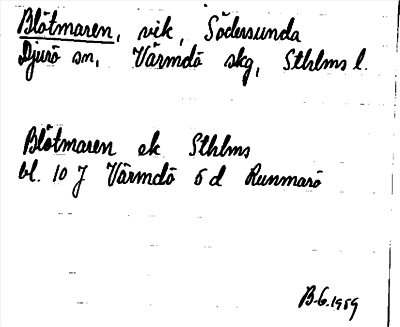 Blötmaren, vik, Södersunda
Djurö sn, Värmdö skg, Sthlms l.
Blötmaren ek Sthlms
bl. 10 J Värmdö 6 d Runmarö
B.G. 1959